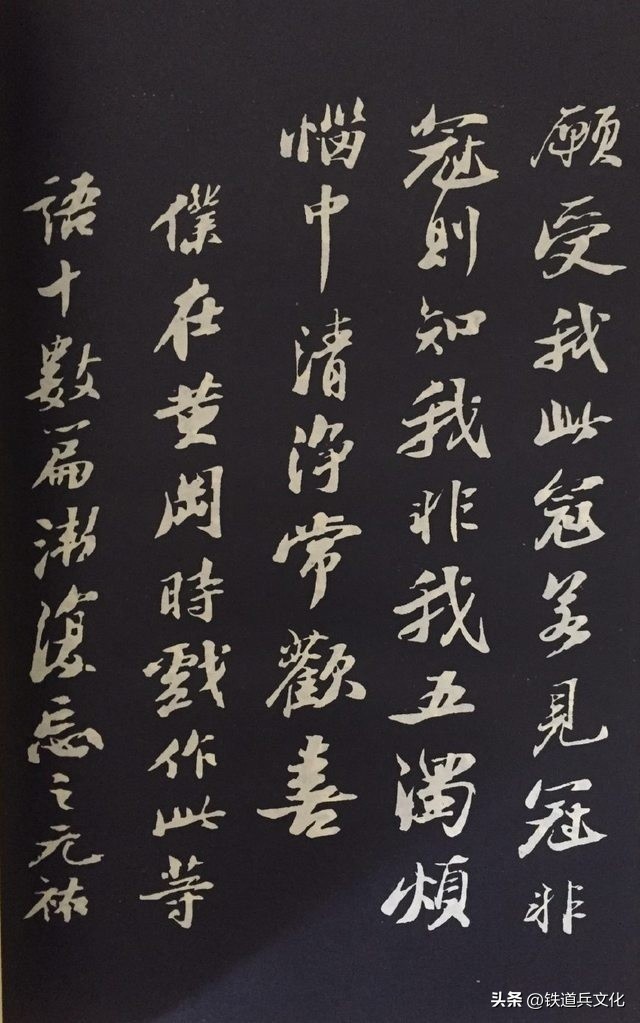 願受我此冠若見冠非
冠則知我非我五濁煩
惱中清淨常歡喜
僕在黄岡時戲作此等
語十數篇漸復忘之元祐
头条 @铁道兵文化